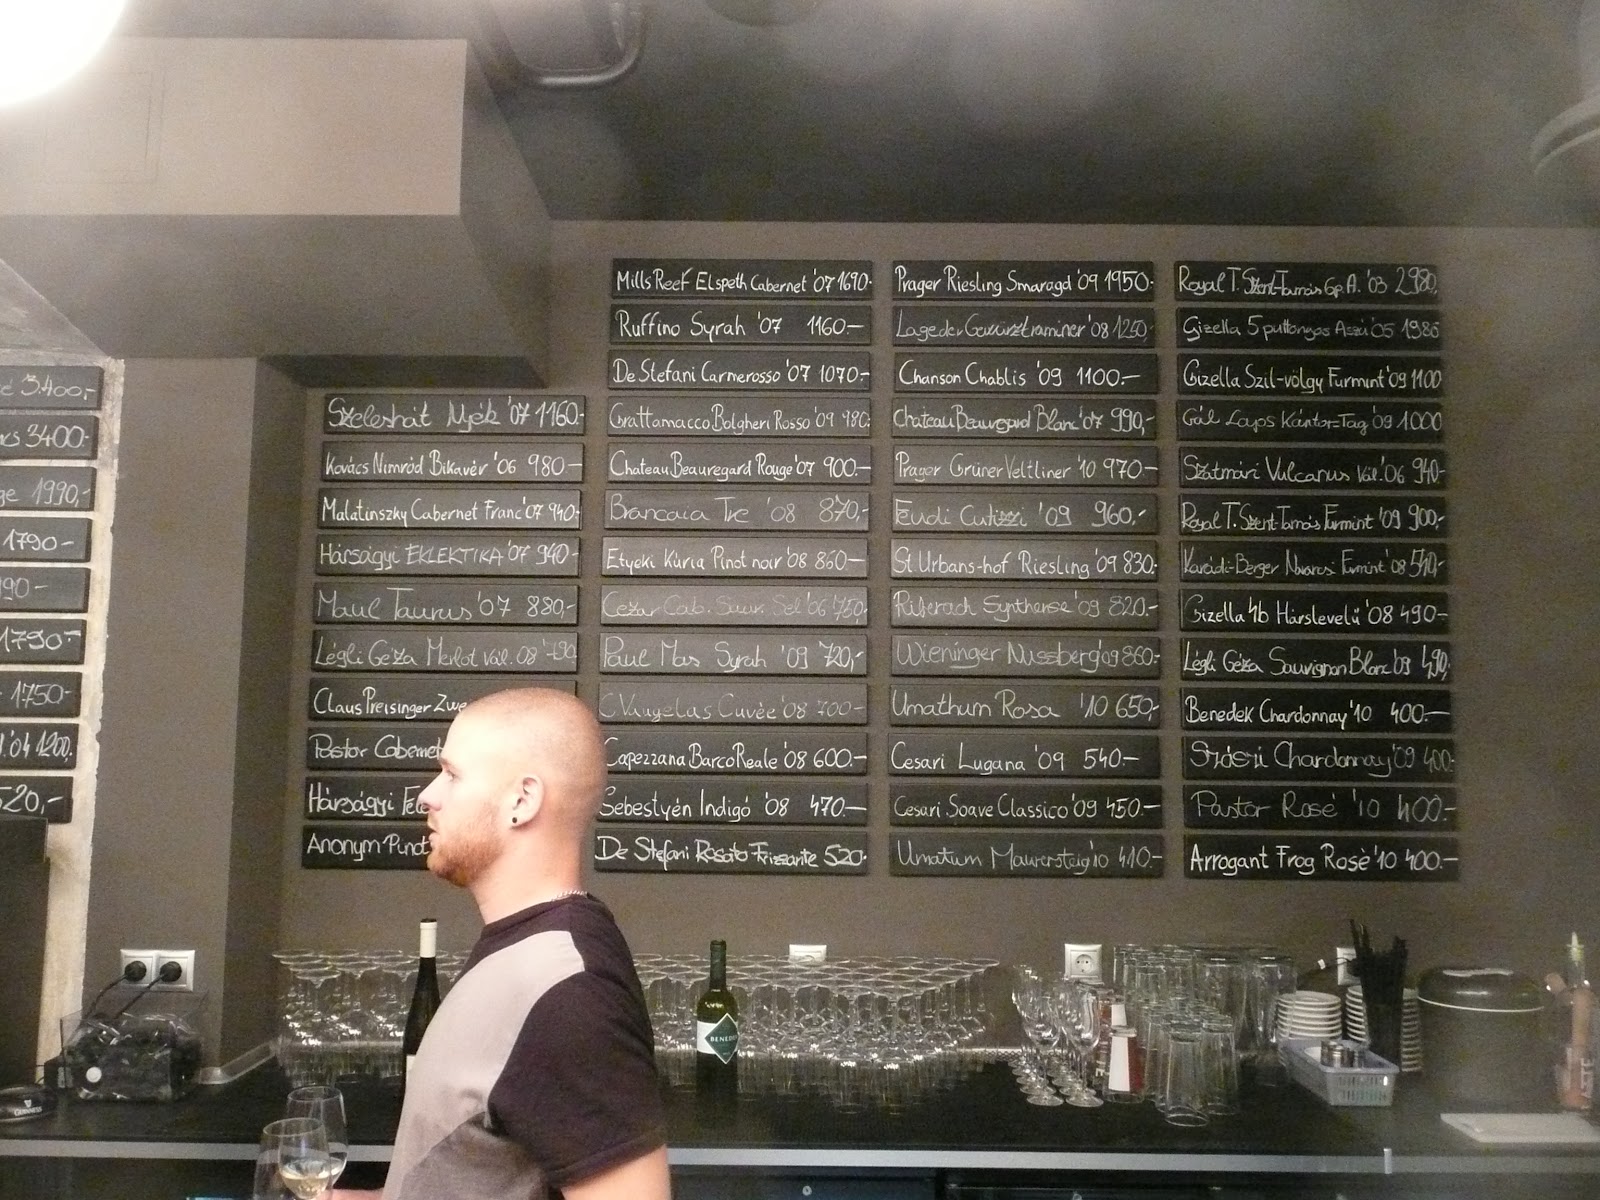 3.400,-
3400-
1990,-
1790-
90-
1790-
1750-
'04 1200,
520,-
Szeleshát Nyék '07 1160.-
Kovács Nimród Bikavér '06 980-
Malatinszky Cabernet Franc '07 940-
Hárságyi EKLEKTIKA '07 940-
Maul Taurus '07 880,-
Légli Géza Merlot Vál. 08
Claus Preisinger Zwe
Pastor Cabernet
Hárságyi
Anonym Pinot
Mills Reef Elspeth Cabernet '07 1690.-
Ruffino Syrah '07 1160.-
De Stefani Carmerosso '07 1070.-
Grattamacco Bolgheri Rosso '09 980.
Chateau Beauregard Rouge '07 900.-
Brancaia Tre '08 870,-
Etyeki Kúria Pinot noir '08 860-
Cezar Cab. Sauv. Sel '06 750,-
Paul Mas Syrah '09 720,-
C Vaugelas Cuvée '08 700-
Capezzana Barco Reale '08 600.-
Sebestyén Indigó '08 470.-
De Stefani Rosato Frizzante 520.-
Prager Riesling Smaragd '09 1950.-
Lageder Gewürztraminer '08 1250,-
Chanson Chablis '09 1100.-
Chateau Beauregard Blanc '07 990,-
Prager Grüner Veltliner '10 970-
Eudi Cutizzi '09 960,-
St. Urbans-hof Riesling '09 830.-
'09 820.-
Wieninger Nussberg '09 860.-
Umathum Rosa '10 650,-
Cesari Lugana '09 540.-
Cesari Soave Classico '09 450-
Umatum '10 410.-
Royal T. Szent-Tamás Gp. A. '03 2980,
Gizella 5 puttonyos Aszú '05 1980
Gizella Szil-völgy Furmint '09 1100
Gál Lajos Kántor-Tag '09 1000
Szatmári Vulcanus Vál. '06 940-
Royal T. Szent-Tamás Furmint '09 900.-
Karádi-Berger Furmint '08 540,-
Gizella 4b Hárslevelű '08 490-
Légli Géza Sauvignon Blanc '09 490,-
Benedek Chardonnay '10 400.-
Chardonnay '09 400.-
Pastor Rosé '10 400.-
Arrogant Frog Rosè '10 400.-
BENEDEK
GUINNESS